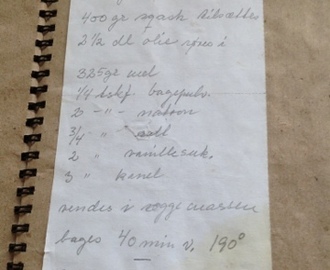 400 gr sqash tilsættes
2 1/2 dl olie røres i
325 gr mel
1/4 tskf. bagepulv.
2 -"- natron
3/4 " salt
2 " vanillesuk.
3 " kanel
vendes i æggemassen
bages 40 min v. 190°